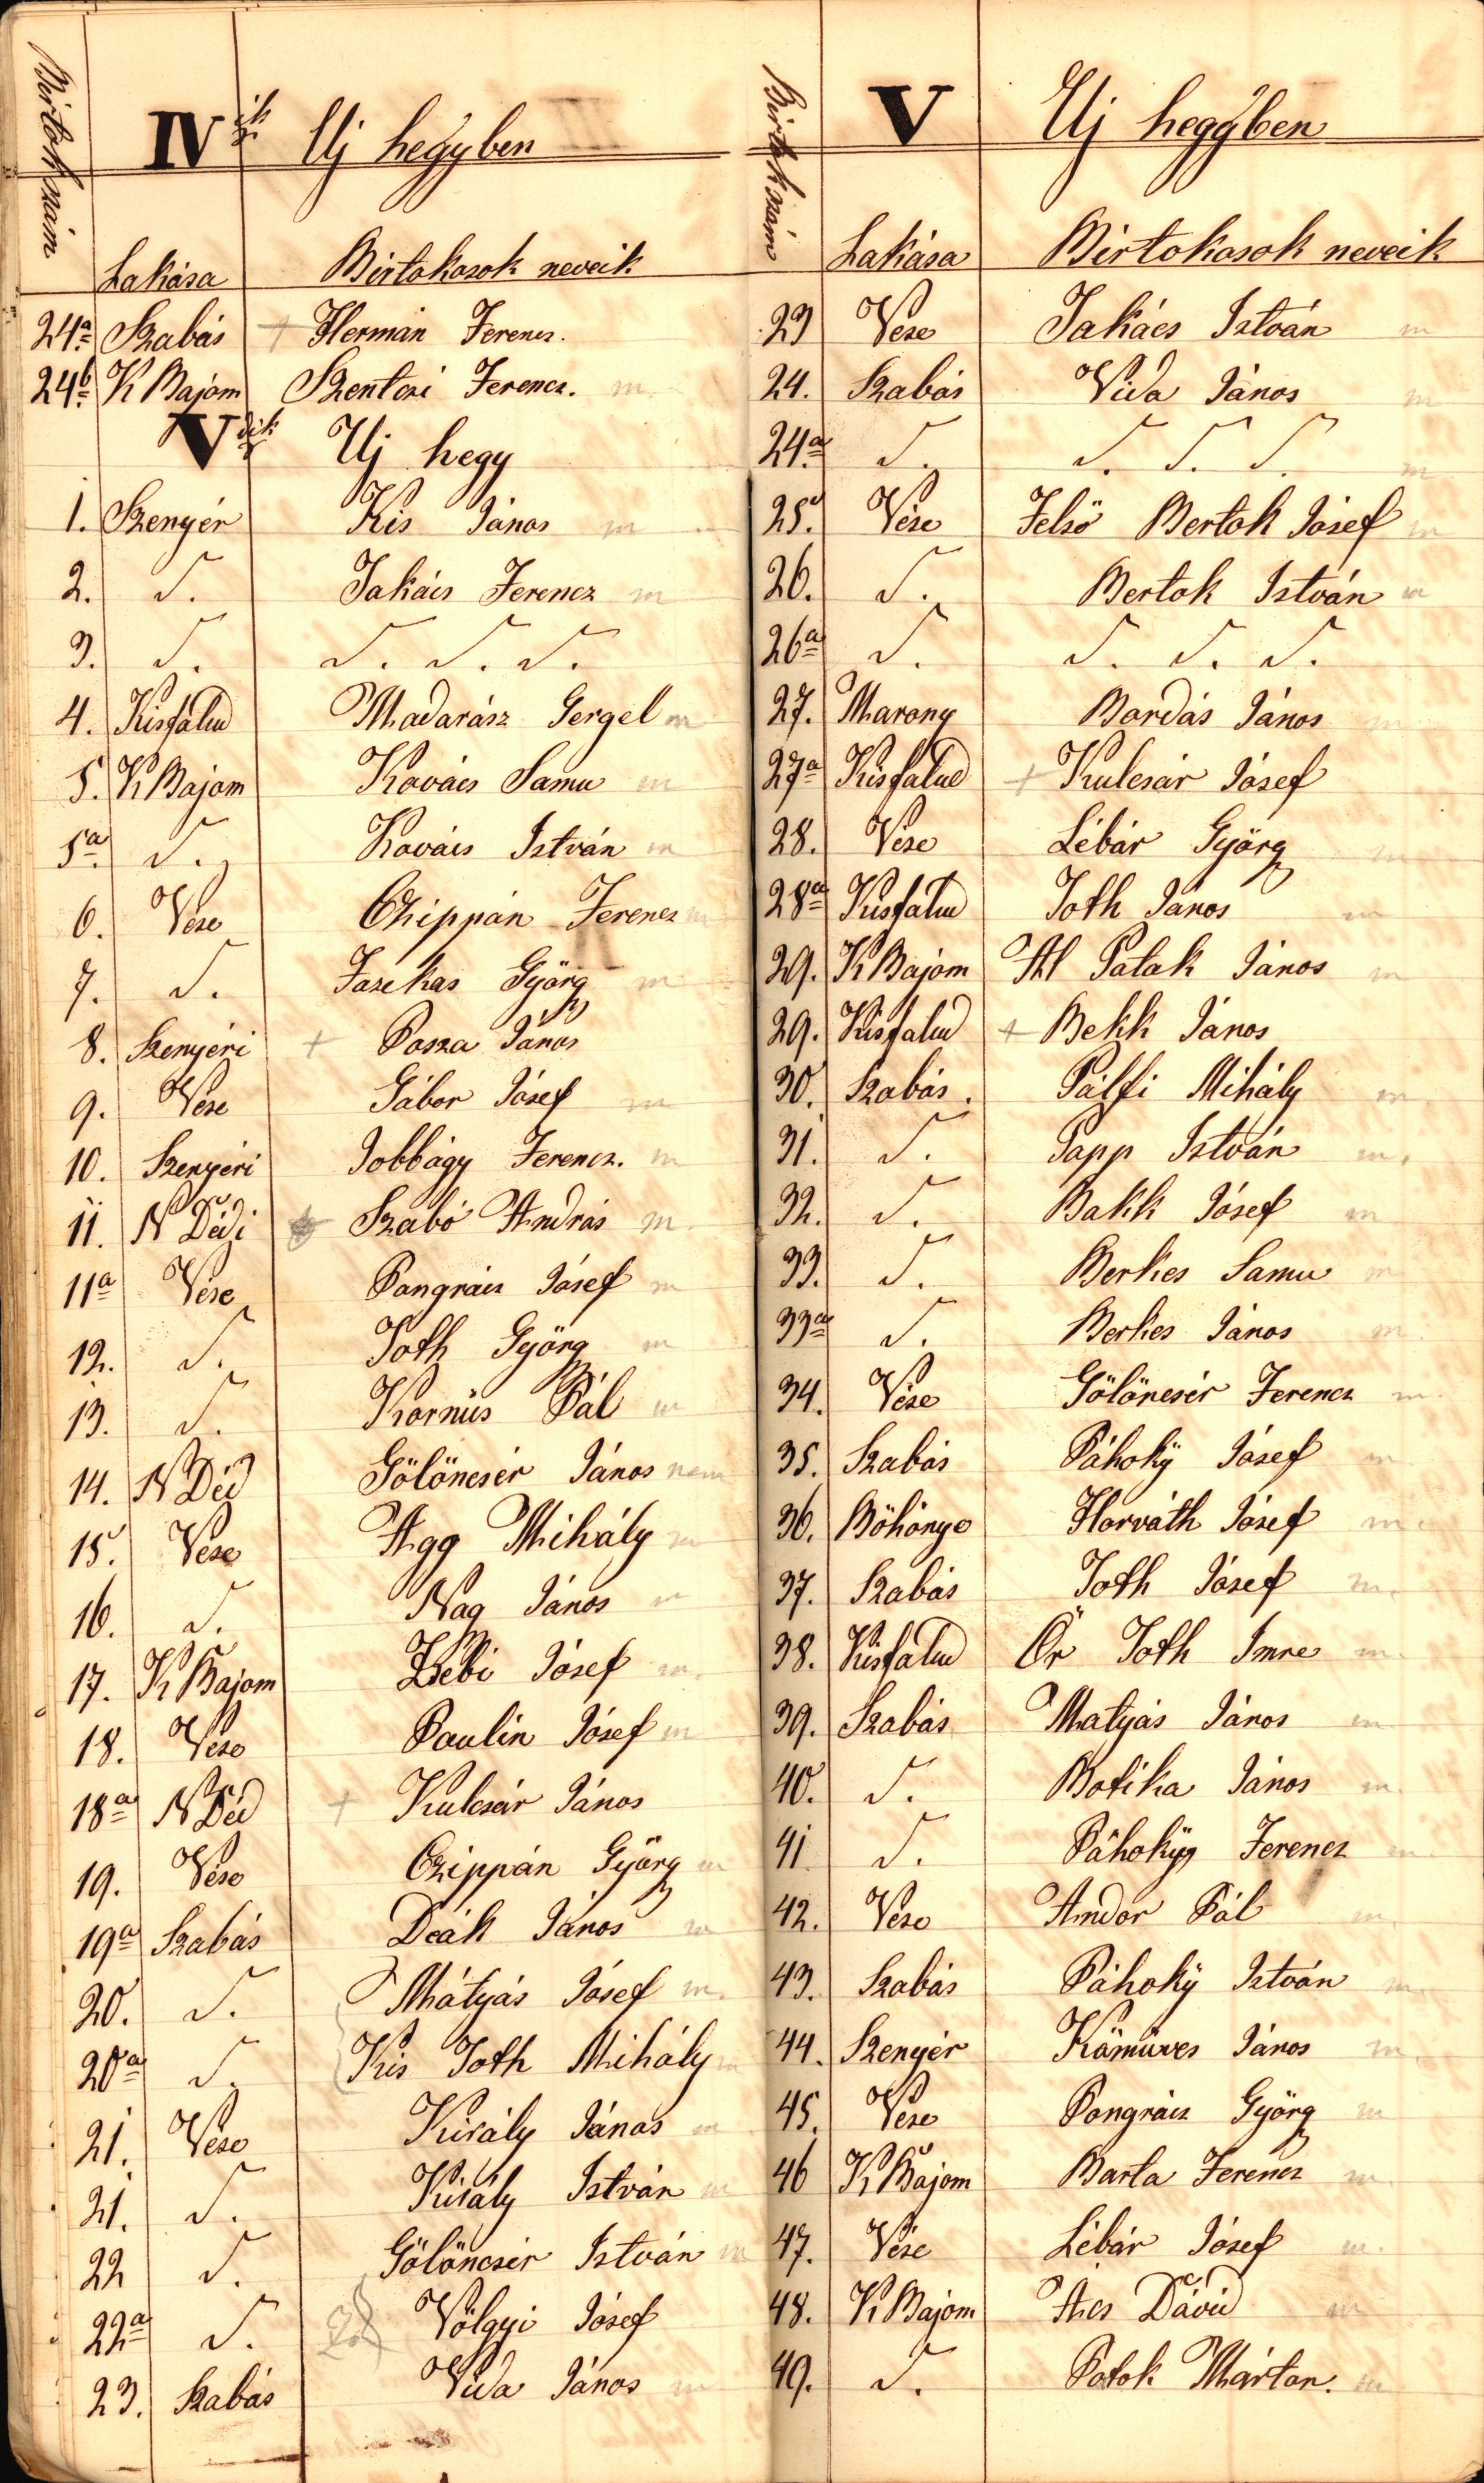 Birtokszám
IVik Uj hegyben
Lakása Birtokosok neveik
24a Szabás + Herman Ferencz.
24b K Bajom Szentesi Ferencz. m
Vdik Uj hegy
1. Szenyér Kis János m
2. S. Takács Ferencz m
3. S. S. S. S.
4. Kisfalud Madarász Gergel m
5. K Bajom Kovács Samu m
5a S. Kovács István m
6. Vése Czippán Ferencz m
7. S. Fazekas Györg m
8. Szenyéri + Posza János
9. Vése Gábor Jósef m
10. Szenyéri Jobbágy Ferencz. m
11. N Dédi Szabó András m.
11a Vése Pongrácz Jósef m
12. S. Toth Györg m
13. S. Kornüs Pál m
14. N Déd Gölöncsér János nem
15. Vése Agg Mihály m
16. S. Nag János m
17. K Bajom Zsebi Jósef m.
18. Vése Paulin Jósef m
18a N Déd + Kulcsár János
19. Vése Czippán Györg m
19a Szabás Deák János m
20. S. Mátyás Jósef m.
20a S. Kis Toth Mihály m
21. Vése Király János m
21. S. Király István m
22 S. Gölöncsér István m
22a S. Völgyi Jósef
23. Szabás Vida János m
Birtokszám
V Uj hegyben
Lakása Birtokosok neveik
23 Vése Takács István m
24. Szabás Vida János m
24a S. S. S. S. m
25. Vése Felső Bertok Jósef m
26. S. Bertok István m
26a S. S. S. S.
27. Marong Bordás János m
27a Kisfalud + Kulcsár Jósef
28. Vése Lébár Györg m
28a Kisfalud Toth János m
29. K Bajom Al Patak János m
29. Kisfalud + Bekk János
30. Szabás. Pálfi Mihály m.
31. S. Papp István m.
32. S. Bakk Jósef m
33. S. Berkes Samu m
33a S. Berkes János m.
34. Vése Gölöncsér Ferencz m.
35. Szabás Páhoky Jósef m.
36. Böhönye Horváth Jósef m.
37. Szabás Toth Jósef m.
38. Kisfalud Őr Toth Imre m.
39. Szabás Matyás János m
40. S. Botika János m.
41 S. Páhoky Ferencz m
42. Vése Andor Pál m
43. Szabás Páhoky István m.
44. Szenyér Kömüves János m.
45. Vése Pongrácz Györg m
46 K Bajom Barta Ferencz m.
47. Vése Lébár Jósef m.
48. K Bajom Ács Dávid m
49. S. Potok Márton. m